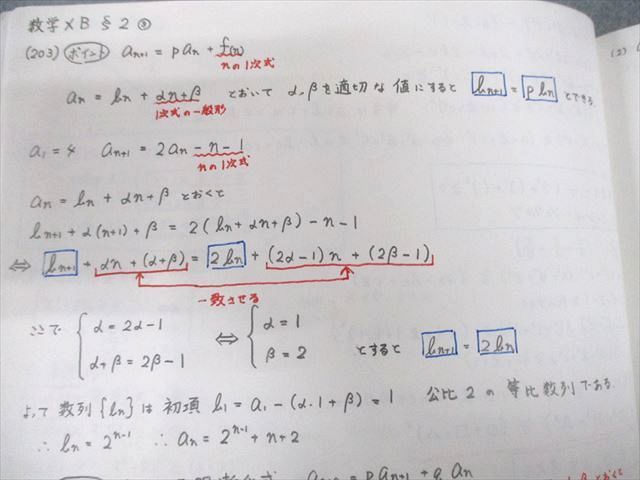 数学XB §2 ③
(203) ポイント aₙ₊₁ = p aₙ + f(n)
nの1次式
aₙ = bₙ + αn+β とおいて α, βを適切な値にすると bₙ₊₁ = p bₙ とできる
1次式の一般形
a₁ = 4 aₙ₊₁ = 2aₙ - n - 1
nの1次式
aₙ = bₙ + αn + β とおくと
bₙ₊₁ + α(n+1) + β = 2(bₙ + αn + β) - n - 1
⇔ bₙ₊₁ + αn + (α+β) = 2bₙ + (2α-1)n + (2β-1)
一致させる
ここで { α = 2α-1 ⇔ { α = 1
α+β = 2β-1 β = 2 とすると bₙ₊₁ = 2bₙ
よって 数列{bₙ}は 初項 b₁ = a₁ - (α・1 + β) = 1 公比 2 の 等比数列である
∴ bₙ = 2ⁿ⁻¹ ∴ aₙ = 2ⁿ⁻¹ + n + 2
p aₙ₊₁ + q aₙ
(2)